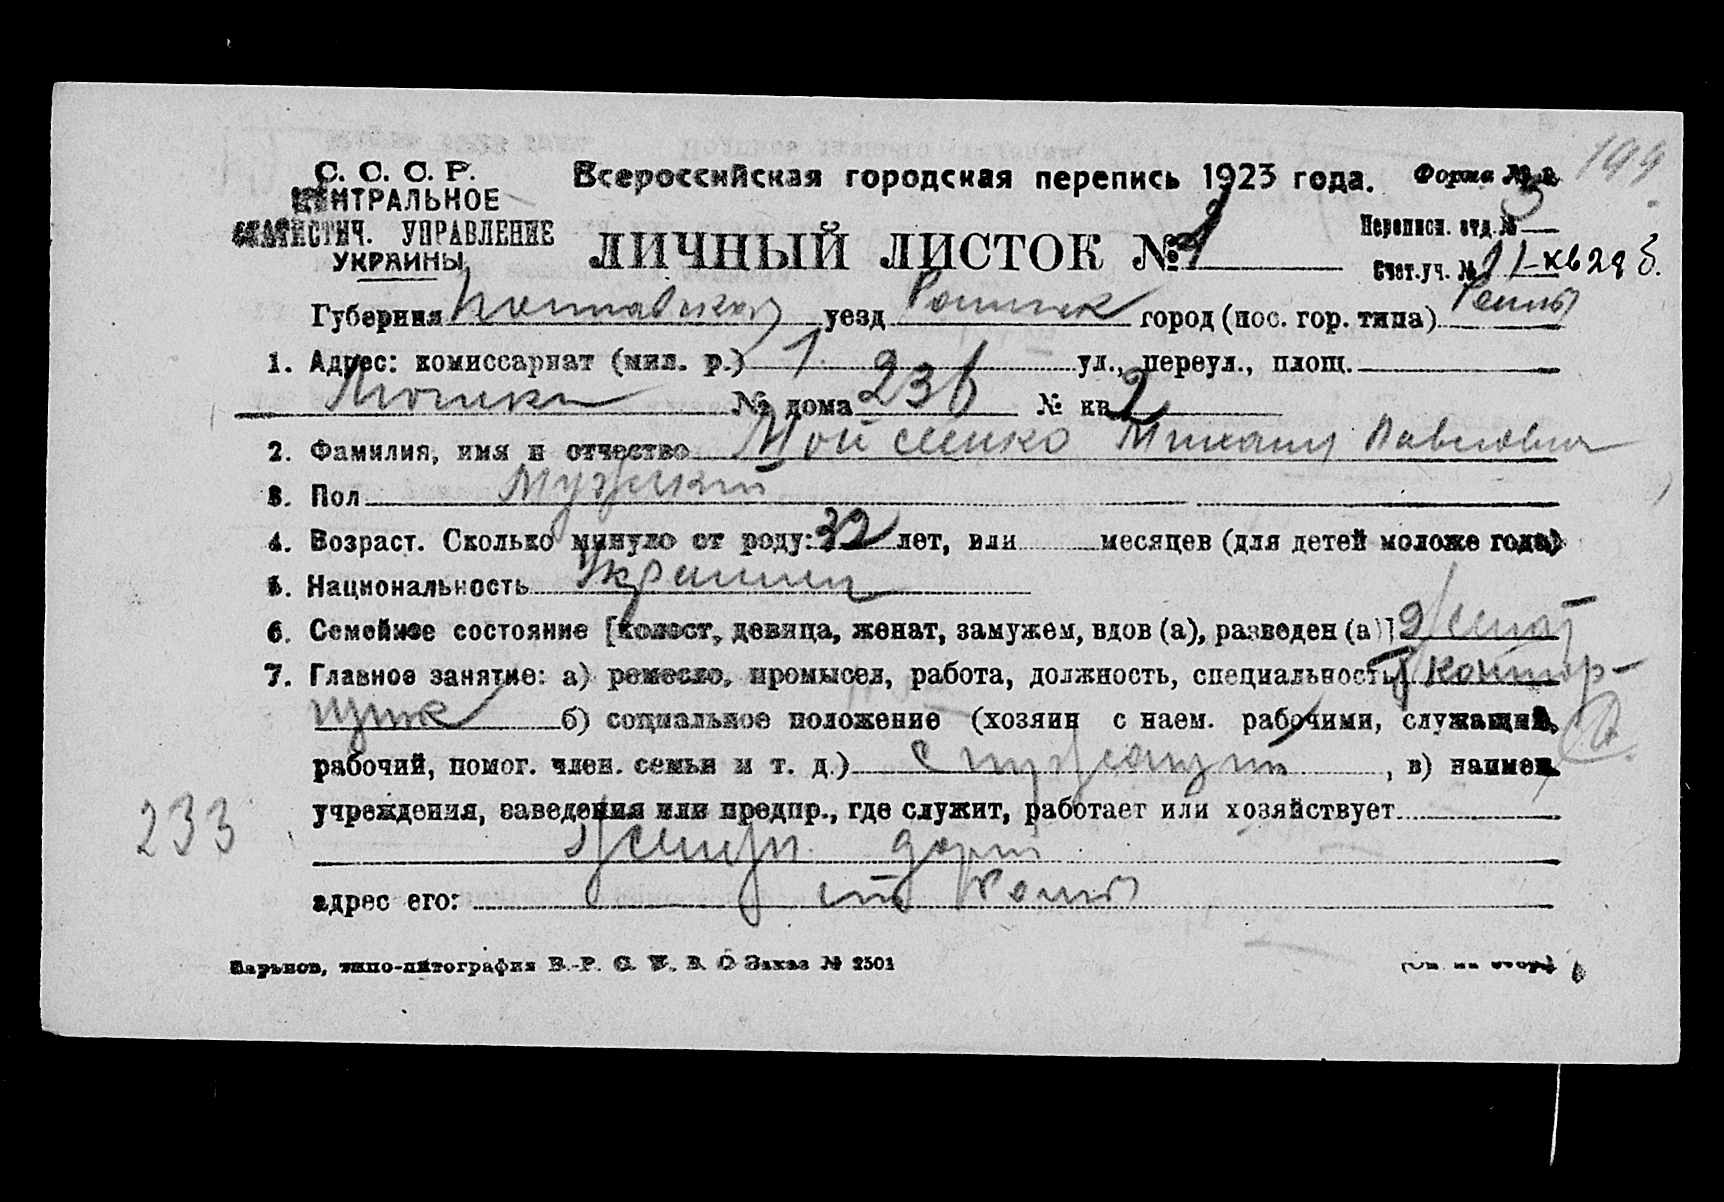 199
С. С. С. Р.
ЦЕНТРАЛЬНОЕ
СТАТИСТИЧ. УПРАВЛЕНИЕ
УКРАИНЫ
Всероссийская городская перепись 1923 года.
Форма № 2
ЛИЧНЫЙ ЛИСТОК № 1
Переписн. отд. № 3
Счет. уч. № 11-кв 29 б.
Губерния Полтавская уезд Роменск город (пос. гор. типа) Ромны
1. Адрес: комиссариат (мил. р.) 1 ул., переул., площ.
№ дома 236 № кв 2
2. Фамилия, имя и отчество Мойсеенко Михаил Павлович
3. Пол Мужской
4. Возраст. Сколько минуло от роду: 32 лет, или месяцев (для детей моложе года)
5. Национальность Украинец
6. Семейное состояние [холост, девица, женат, замужем, вдов (а), разведен (а)] Женат
7. Главное занятие: а) ремесло, промысел, работа, должность, специальность контор-
щик б) социальное положение (хозяин с наем. рабочими, служащий,
рабочий, помог. член. семьи и т. д.) служащий, в) наимен.
учреждения, заведения или предпр., где служит, работает или хозяйствует
233
адрес его: ст Ромны
Харьков, типо-литография В.-Р. С. У. В. О Заказ № 2501